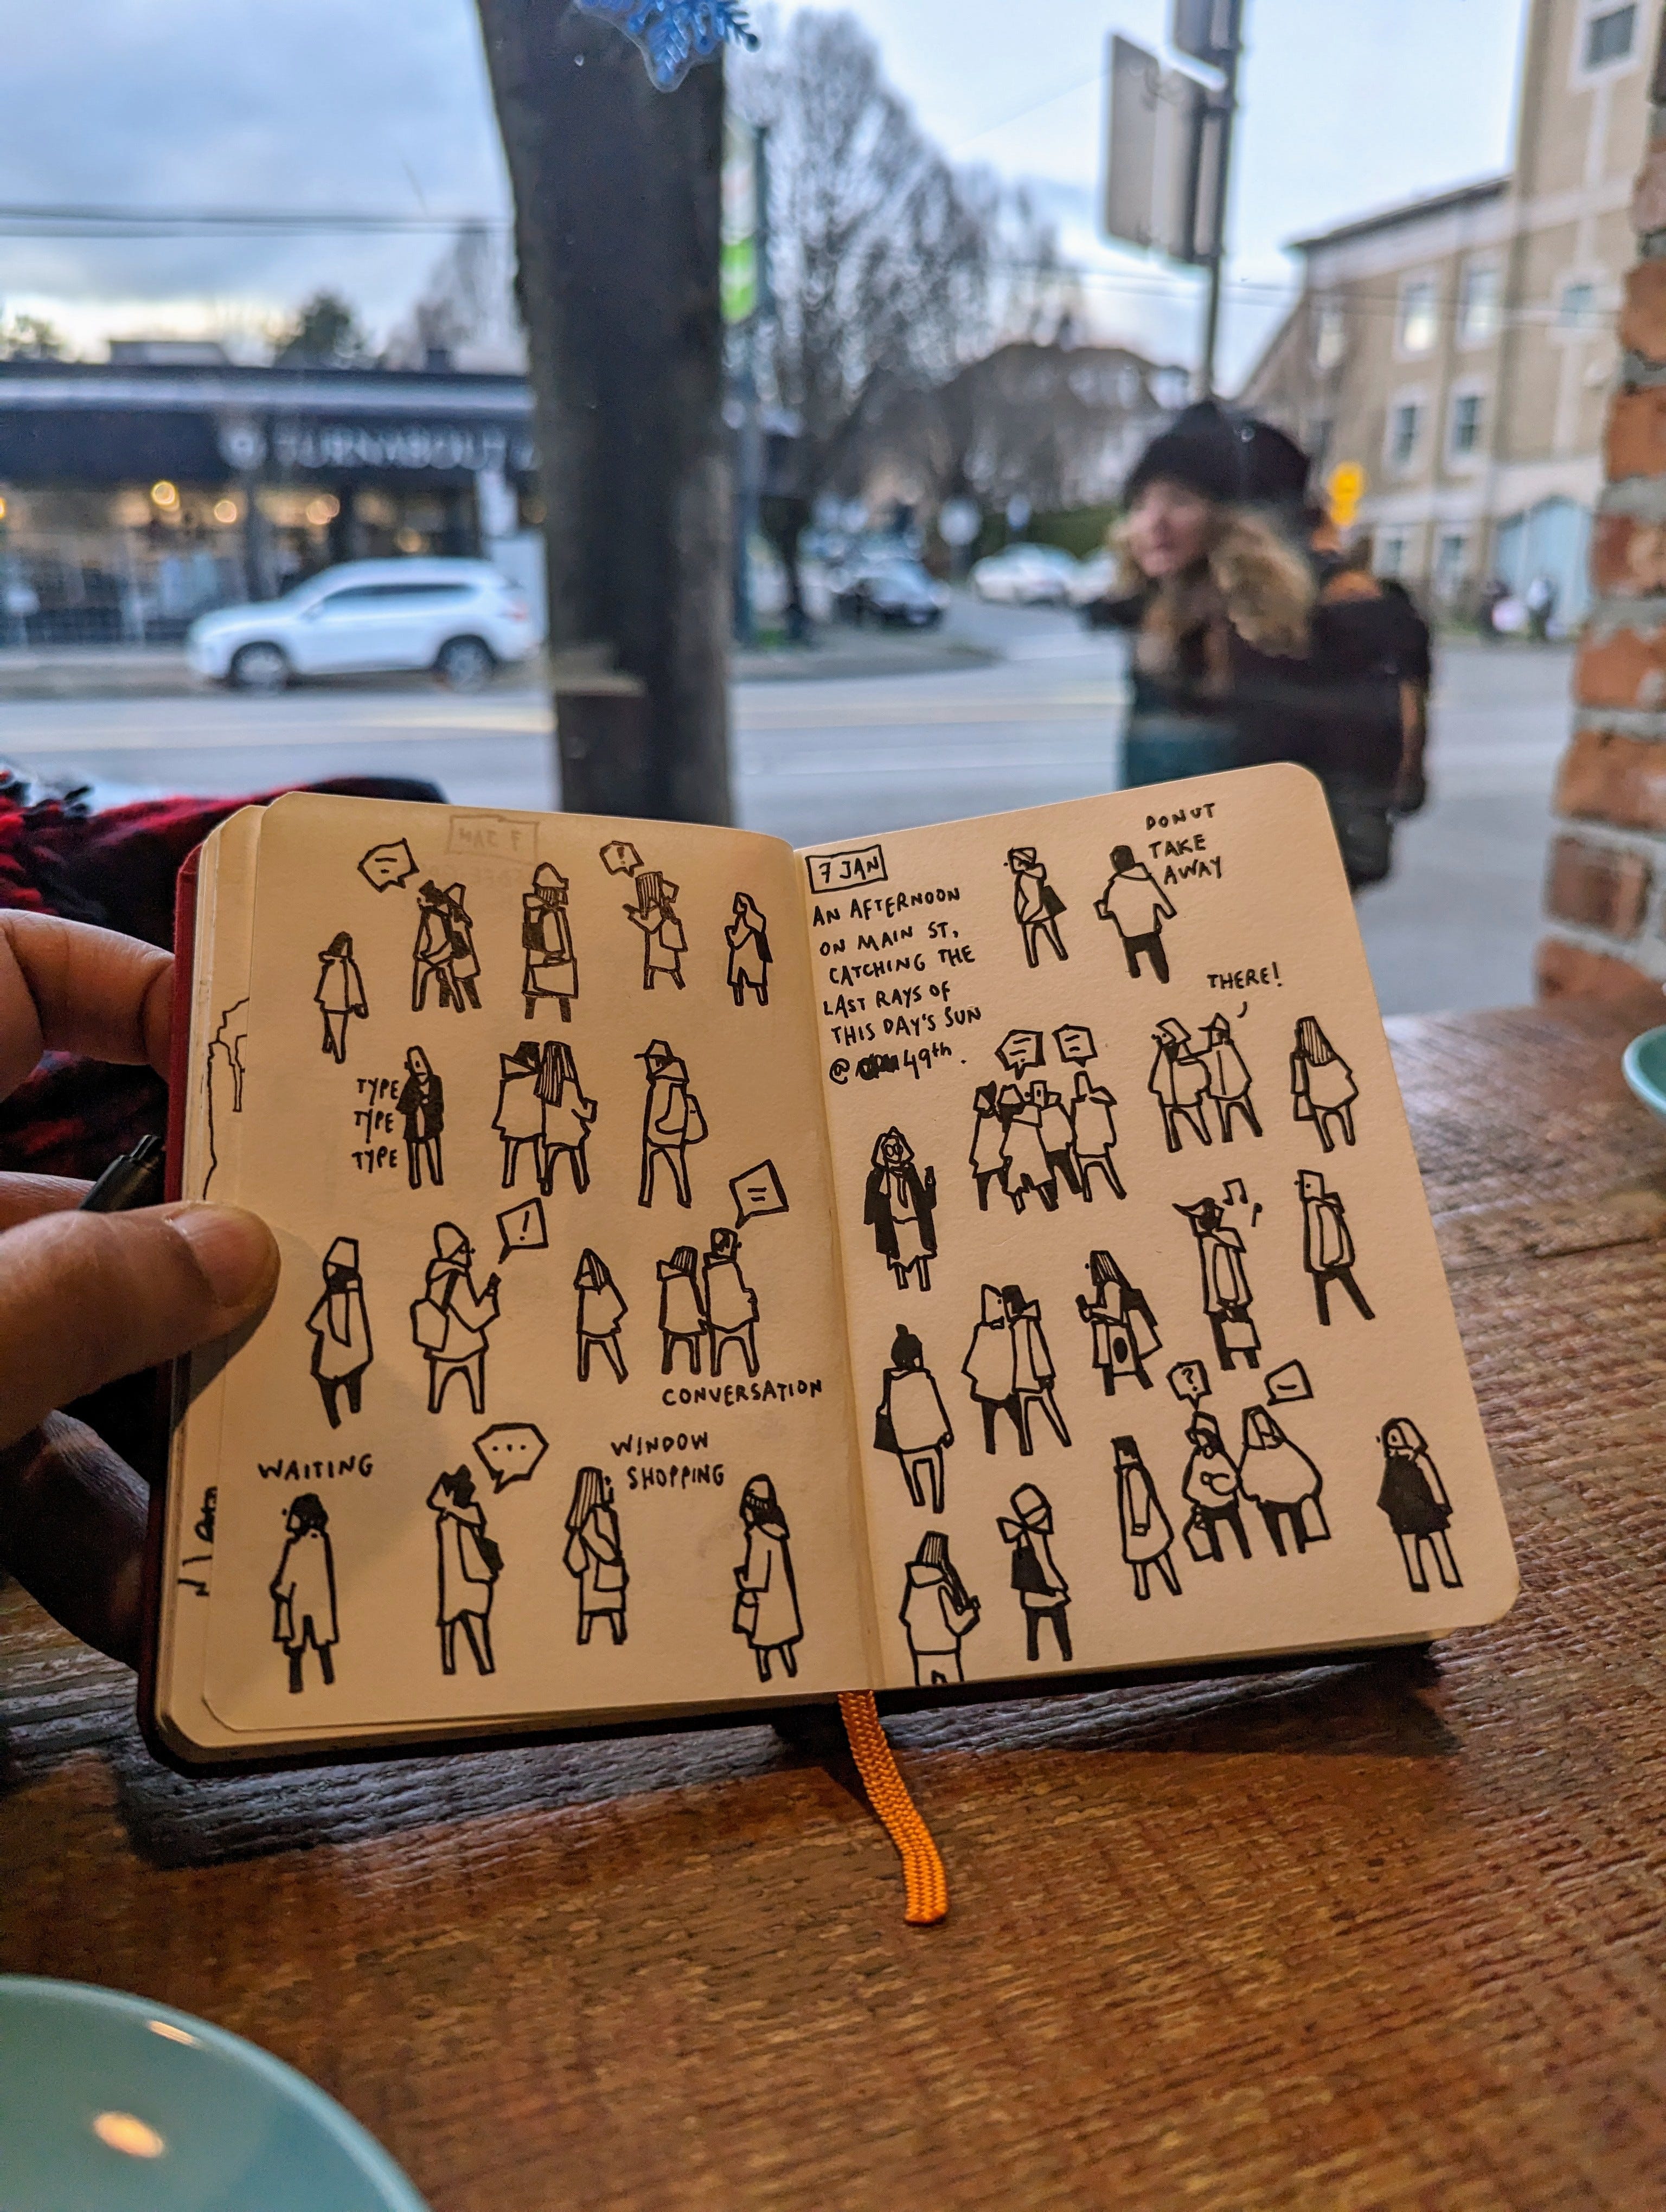 TURNABOUT
TYPE
TYPE
TYPE
CONVERSATION
WAITING
WINDOW
SHOPPING
7 JAN
AN AFTERNOON
ON MAIN ST,
CATCHING THE
LAST RAYS OF
THIS DAY'S SUN
@ 49th.
DONUT
TAKE
AWAY
THERE!
!
!
...
?